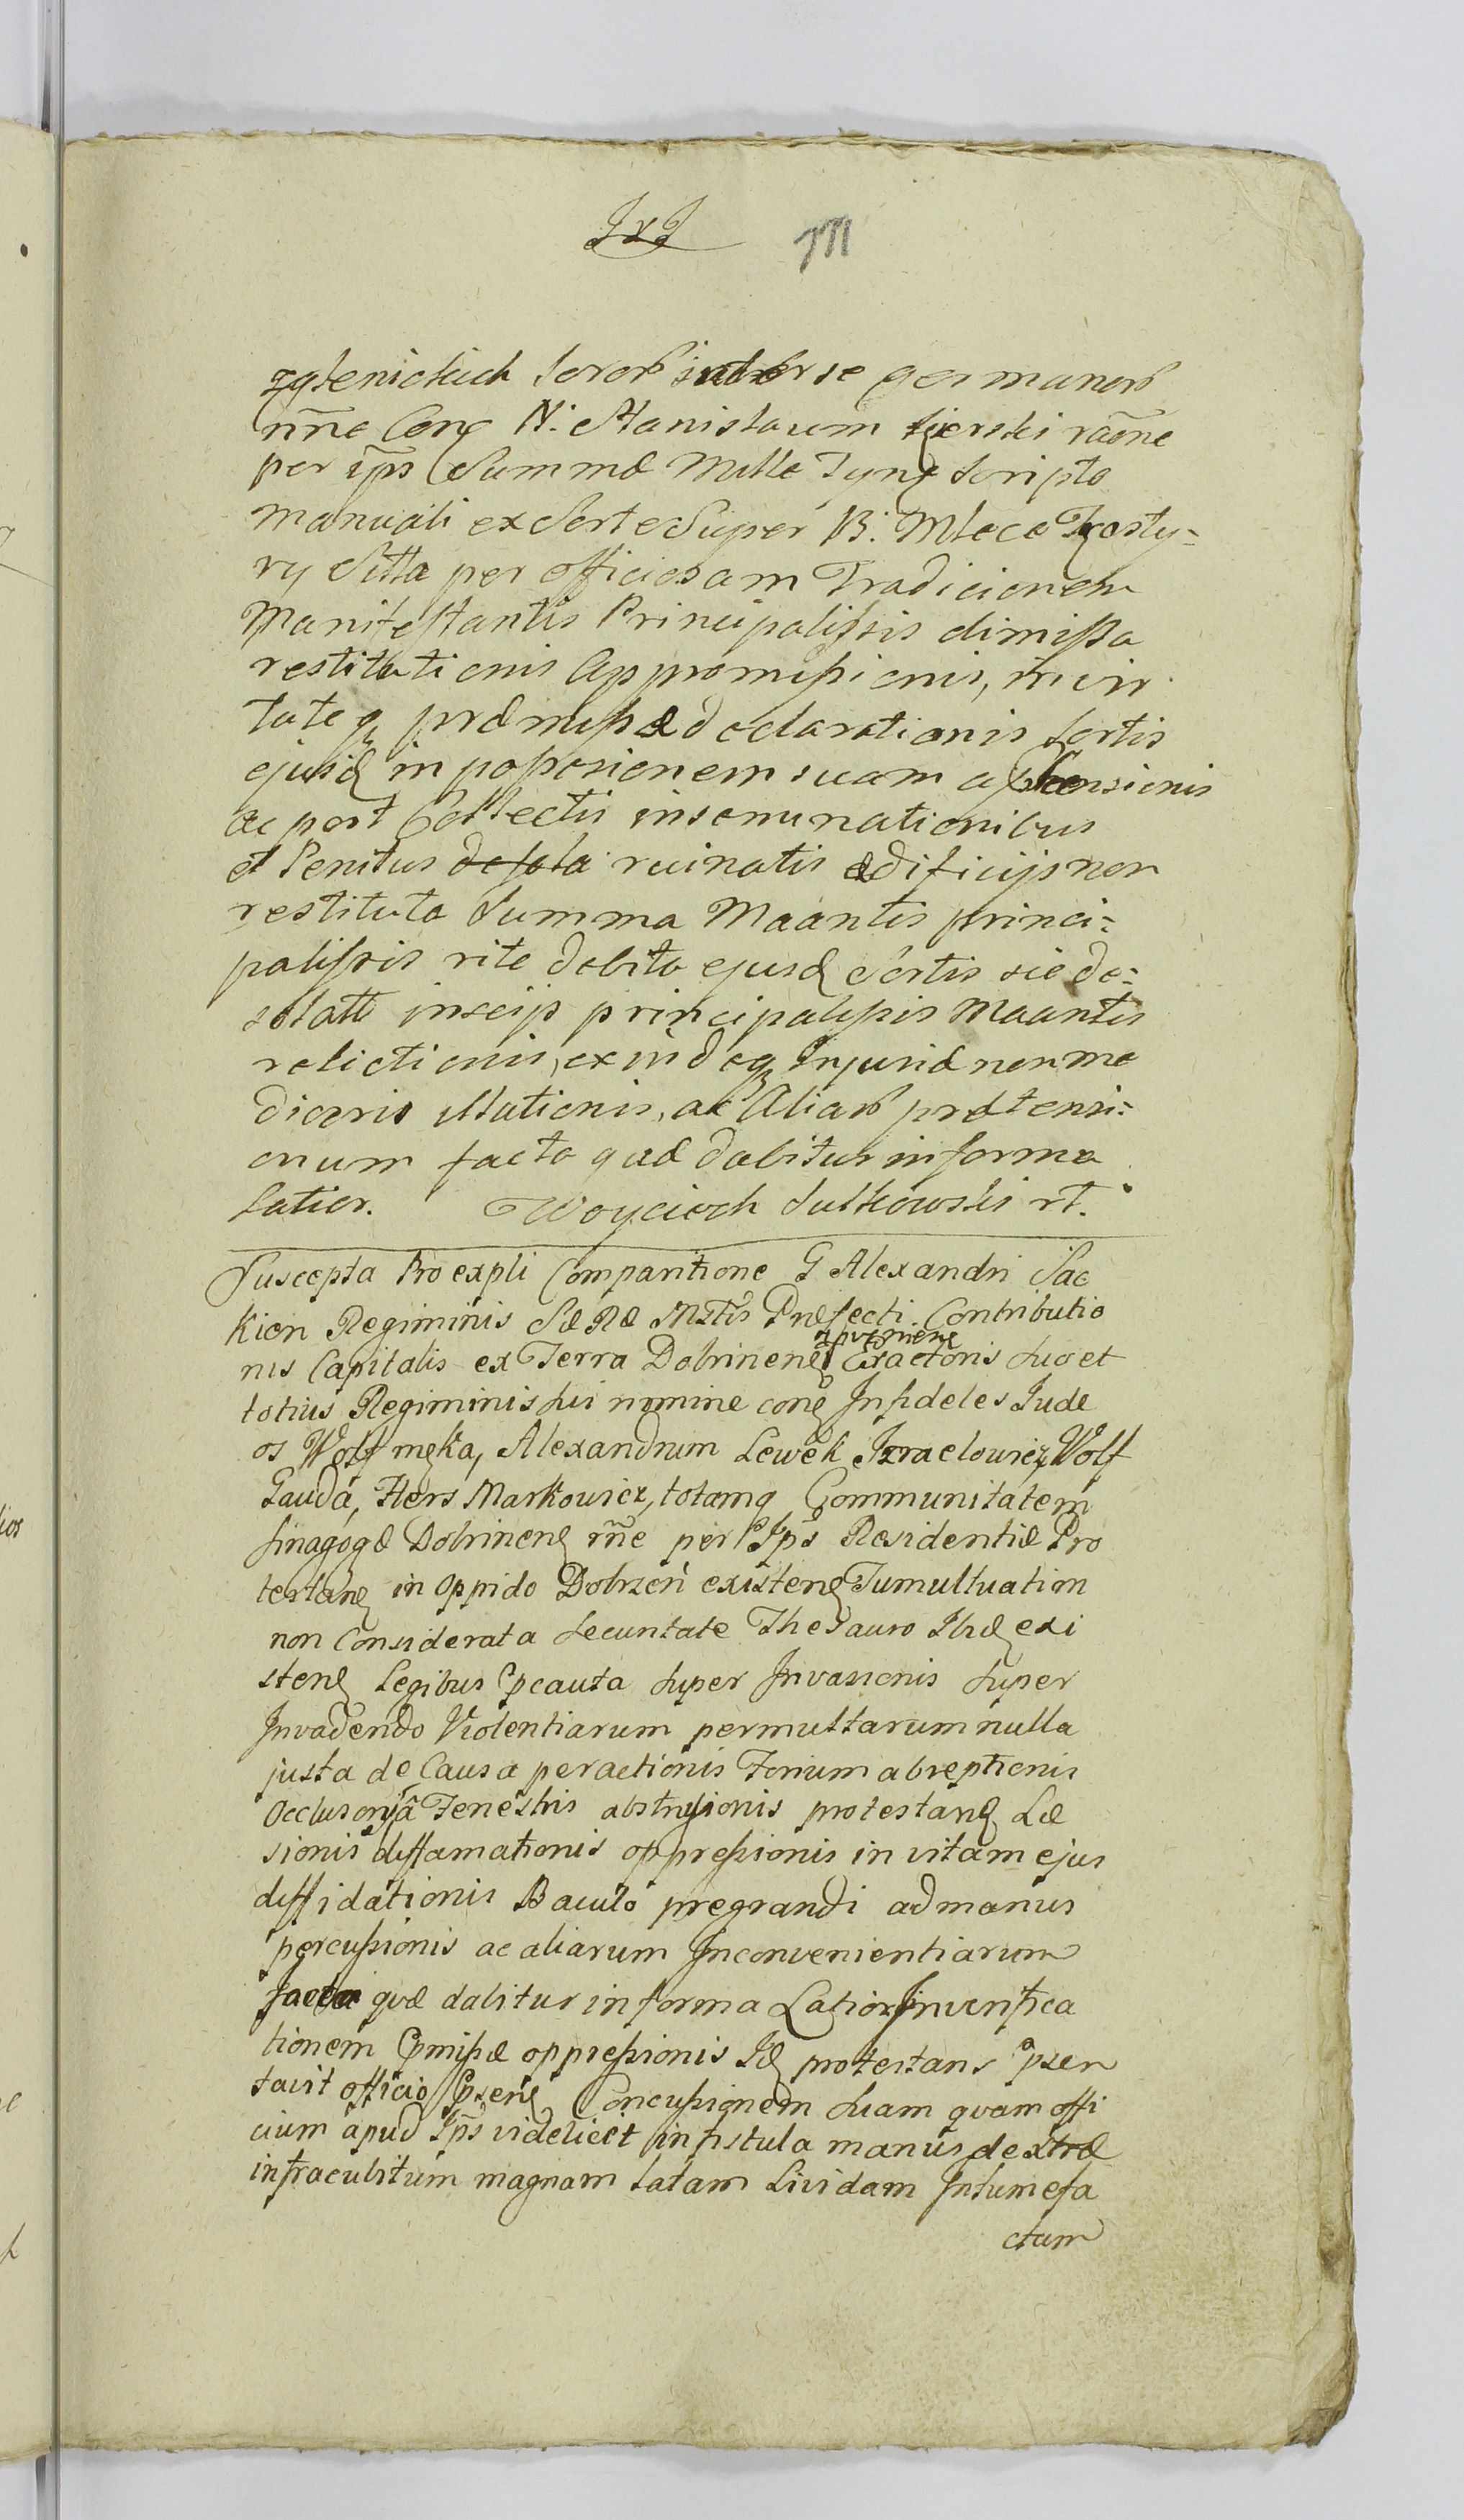 zglenickich Soror inter se germanor
nr̃ne Conẽ N: Stanislaum Sierski raõne
per ip̃s Summæ Mille Tynf Scripto
manuali ex Sorte Super B: Mleca Trosty=
ry Sitta per officiosam Tradicionem
Manifestantis Principalissis dimissa
restitutionis appromissionis, in vir
tuteq præmissæ declarationis Sortis
ejusd in possesionem suam aphensionis
ac post Collectis inseminationibus
et Penitus desola ruinatis ædificijs non
restituta Summa Maantis princi=
palissis rite debita ejusd Sortis sic de=
solatæ inscijs principalissis Maantis
relictionis, exindeq Injuriæ non me
diocris illationis, ac Aliar prætensi=
onum facta quæ dabitur in forma
latior. Woyciech Sulkowski rt.
Suscepta Pro expli Comparitione G Alexandri Sac
kien Regiminis Sæ Ræ Mstis Præfecti Contributio
nis Capitalis ex Terra Dobrinenẽ Exactoris Suo et
totius Regiminis Sui nomine conẽ Infideles Judæ
os Wolf męka, Alexandrum Lewek Izraelowicz, Wolf
Gauda, Hers Markowicz, totamq Communitatem
Sinagogæ Dobrinenẽ r̃ne per Ip̃s Residentiæ Pro
testanẽ in Oppido Dobrzeń existenẽ Tumultuatim
non Considerata Securitate Thesauro Ibid exi
stenẽ Legibus pcauta Super Invasionis Super
Invadendo Violentiarum permultarum nulla
justa de Causa peractionis Forium abreptionis
Occlusoria Fenestris abstrusionis protestanẽ Læ
sionis diffamationis oppressionis in vitam ejus
diffidationis Baculo pregrandi ad manus
percussionis ac aliarum Inconvenientiarum
facta quæ dabitur in forma Latiori In verifica
tionem pmissæ oppressionis Id protestans psen
tavit officio psenẽ Concussionem Suam quam offi
cium apud Ip̃s videlicet in fistula manus dextræ
infracubitum magnam latam Lividam Intumefa
ctam